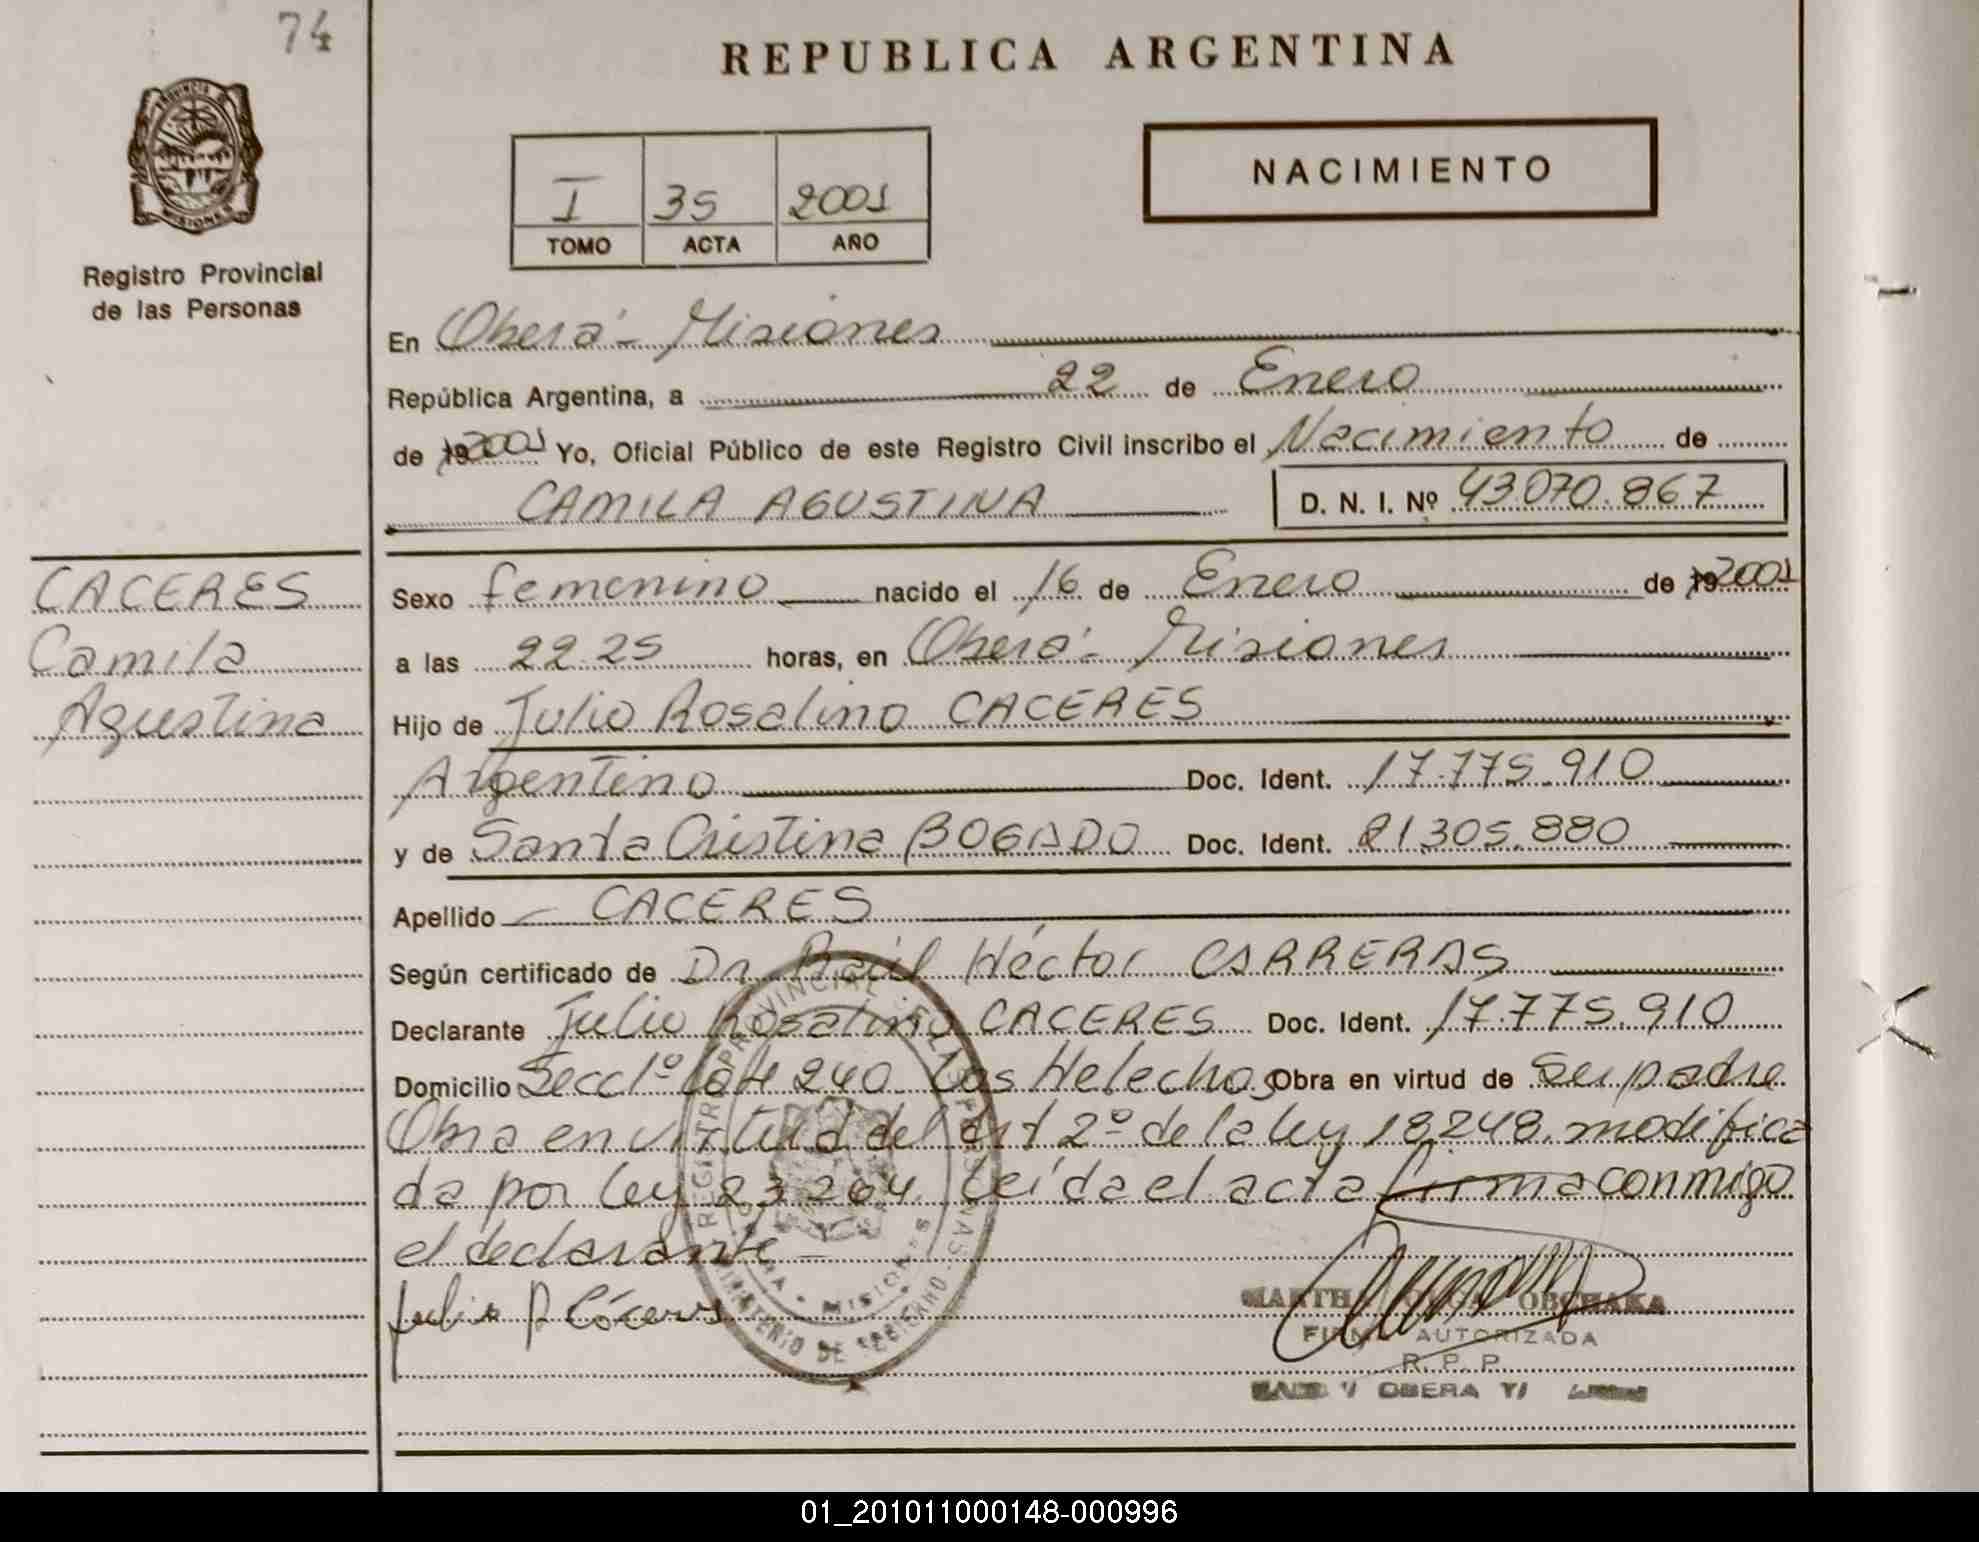 74
REPUBLICA ARGENTINA
PROVINCIA DE
MISIONES
Registro Provincial
de las Personas
I 35 2001
TOMO ACTA AÑO
NACIMIENTO
En Oberá - Misiones
República Argentina, a 22 de Enero
de 19 2001 Yo, Oficial Público de este Registro Civil inscribo el Nacimiento de
CAMILA AGUSTINA D. N. I. Nº 43.070.867
CACERES
Camila
Agustina
Sexo femenino nacido el 16 de Enero de 19 2001
a las 22.25 horas, en Oberá - Misiones
Hijo de Julio Rosalino CACERES
Argentino Doc. Ident. 17.775.910
y de Santa Cristina BOGADO Doc. Ident. 21.305.880
Apellido CACERES
Según certificado de Dr. Raúl Héctor CARRERAS
Declarante Julio Rosalino CACERES Doc. Ident. 17.775.910
Domicilio Secc 1º Lote 240 Los Helechos Obra en virtud de Ser padre
Obra en virtud del art 2º de la ley 18.248. modifica
da por ley 23.264. Leída el acta firma conmigo
el declarante
Julio R Cáceres
REGISTRO PROVINCIAL DE LAS PERSONAS
MISIONES
MINISTERIO DE GOBIERNO
OBERA
FIRMA AUTORIZADA
R. P. P.
01_201011000148-000996